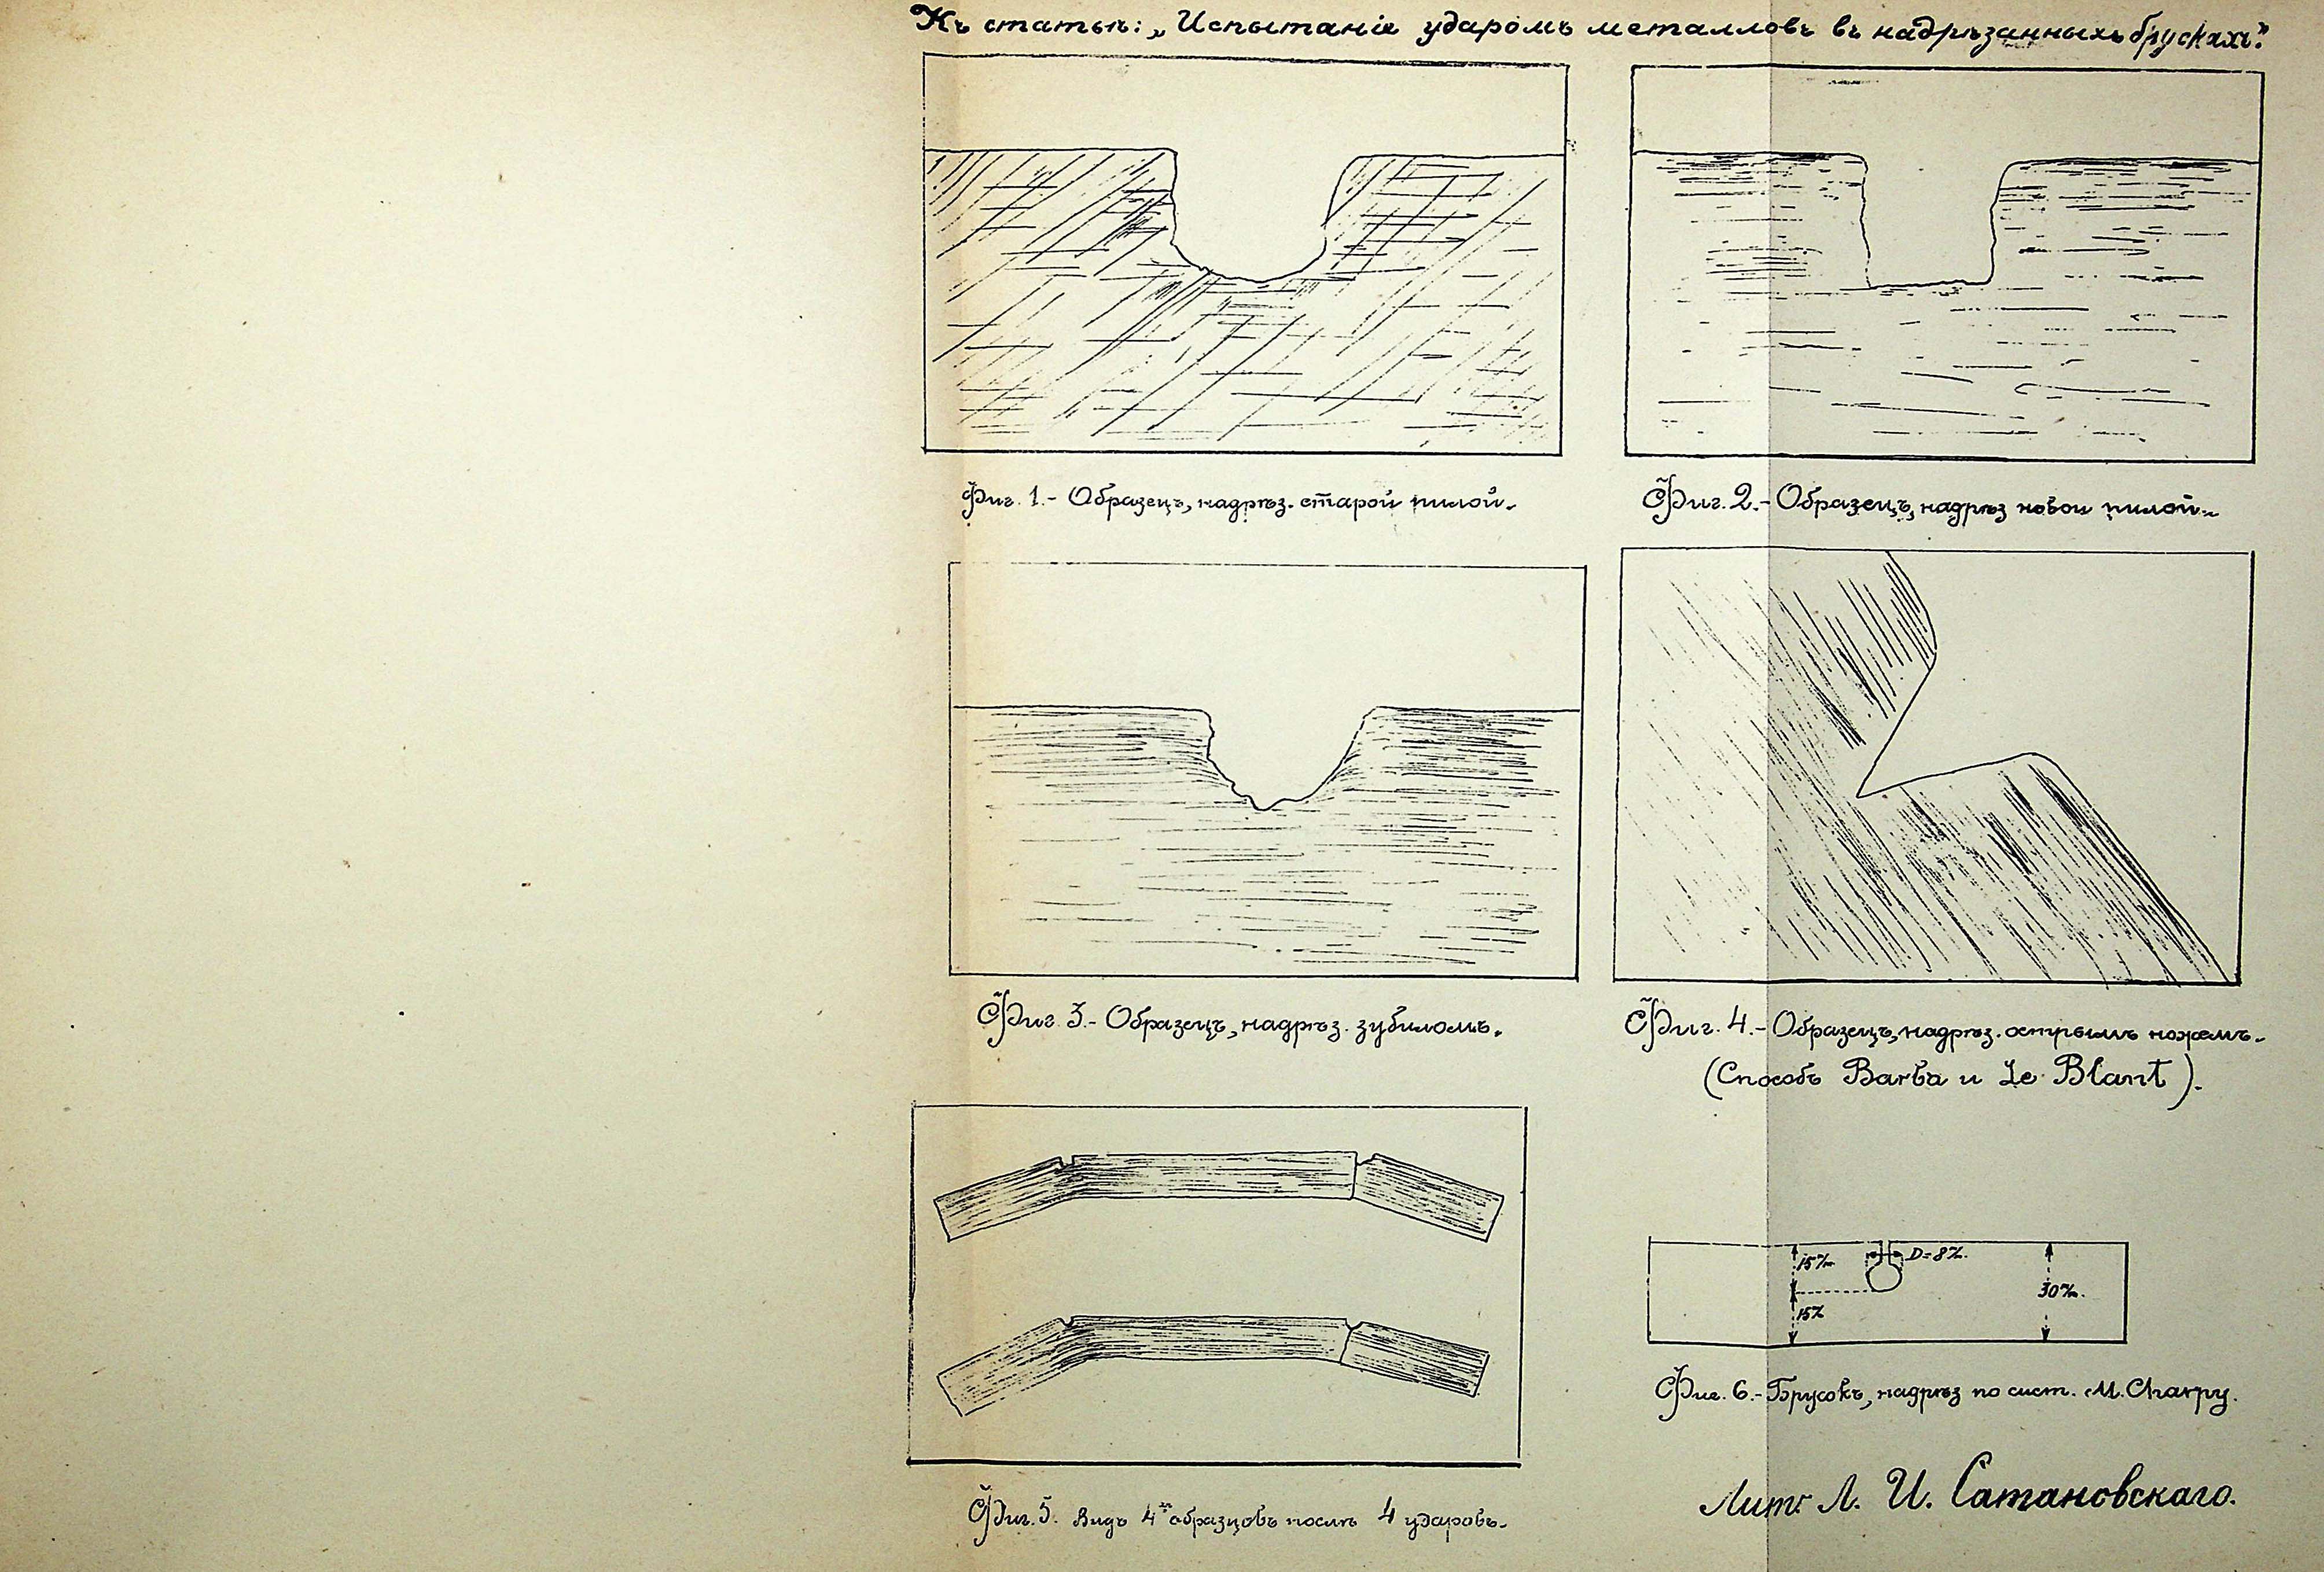 Къ статьѣ: „Испытаніе ударомъ металловъ въ надрѣзанныхъ брускахъ."
Фиг. 1.- Образецъ, надрѣз. старой пилой.-
Фиг. 2.- Образецъ, надрѣз новой пилой.-
Фиг 3.- Образецъ, надрѣз. зубиломъ.
Фиг. 4.- Образецъ, надрѣз. острымъ ножемъ.-
(Способъ Barba и Le Blant).
15 m/m
D=8 m/m.
30 m/m.
15 m/m
Фиг. 5. Видъ 4хъ образцовъ послѣ 4 ударовъ.-
Фиг. 6.- Брусокъ, надрѣз по сист. M. Charpy.
Лит. Л. И. Сатановскаго.